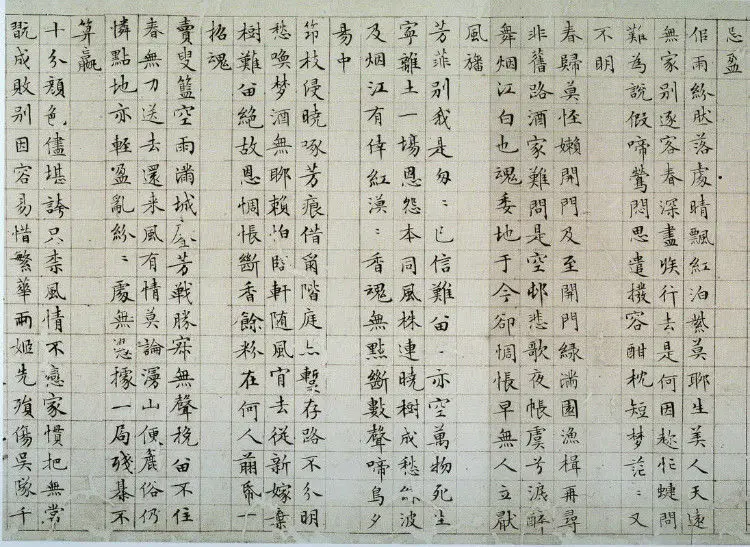 忌盈
佀雨紛肰落處晴飄紅泊紫莫聊生美人天遠
無家別逐客春深盡族行去是何因趂忙蜨問
難為說假啼鶯悶思遣撥容酣枕短夢茫〻又
不明
春歸莫恠嬾開門及至開門綠滿園漁楫再尋
非舊路酒家難問是空邨悲歌夜帳虞兮淚醉
舞烟江白也魂委地于今卻惆悵早無人立厭
風旛
芳菲別我是匆〻已信難畱〻亦空萬物死生
寧離土一場恩怨本同風株連曉樹成愁綠波
及烟江有倖紅漠〻香魂無點斷數聲啼鳥夕
昜中
筇枝侵曉啄芳痕借畱階庭亦暫存路不分明
愁喚夢酒無聊賴怕臨軒随風肎去從新嫁棄
樹難畱絕故恩惆悵斷香餘粉在何人剪帋一
招魂
賣叟籃空雨滿城芳戰勝寂無聲挽畱不住
春無力送去還来風有情莫論漫山便麄俗仍
憐點地亦輕盈亂紛〻處無憑據一局殘棊不
算贏
十分顏色儘堪誇只柰風情不戀家慣把無常
翫成敗別因容易惜繁華兩姬先殞傷吳隊千